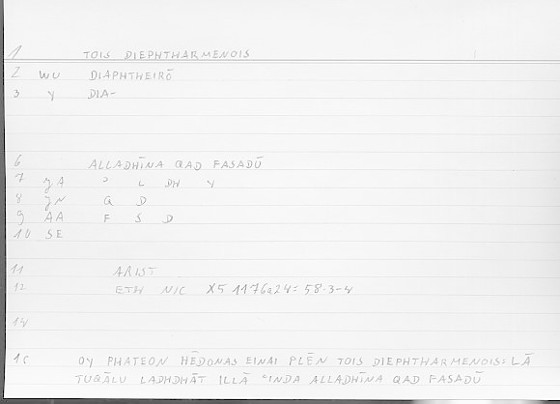 1 TOIS DIEPHTHARMENOIS
2 WU DIAPHTHEIRŌ
3 Y DIA-
6 ALLADHĪNA QAD FASADŪ
7 ʾ L DH Y
8 Q D
9 AA F S D
10 SE
11 ARIST
12 ETH NIC X5 1176a24: 58.3-4
14
15 OY PHATEON HĒDONAS EINAI PLĒN TOIS DIEPHTHARMENOIS: LĀ
TUQĀLU LADHDHĀT ILLĀ ʿINDA ALLADHĪNA QAD FASADŪ